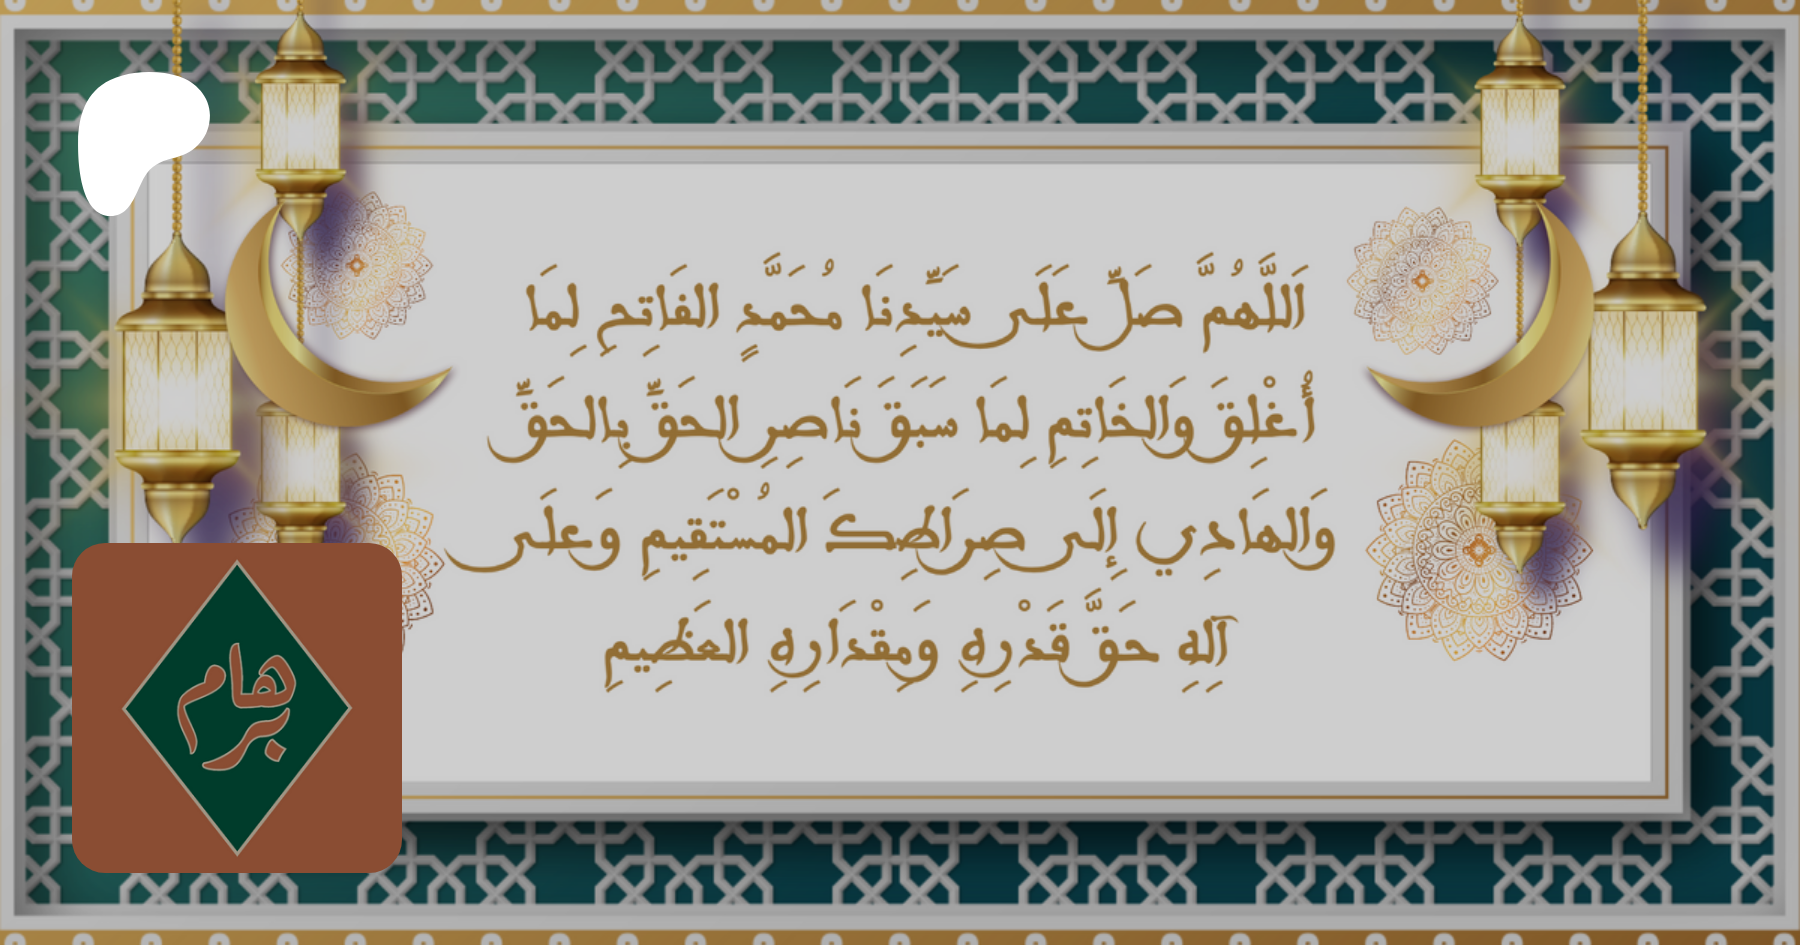 اَللَّهُمَّ صَلِّ عَلَى سَيِّدِنَا مُحَمَّدٍ الفَاتِحِ لِمَا
أُغْلِقَ وَالخَاتِمِ لِمَا سَبَقَ نَاصِرِ الحَقِّ بِالحَقِّ
وَالهَادِي إِلَى صِرَاطِكَ المُسْتَقِيمِ وَعَلَى
آلِهِ حَقَّ قَدْرِهِ وَمِقْدَارِهِ العَظِيمِ